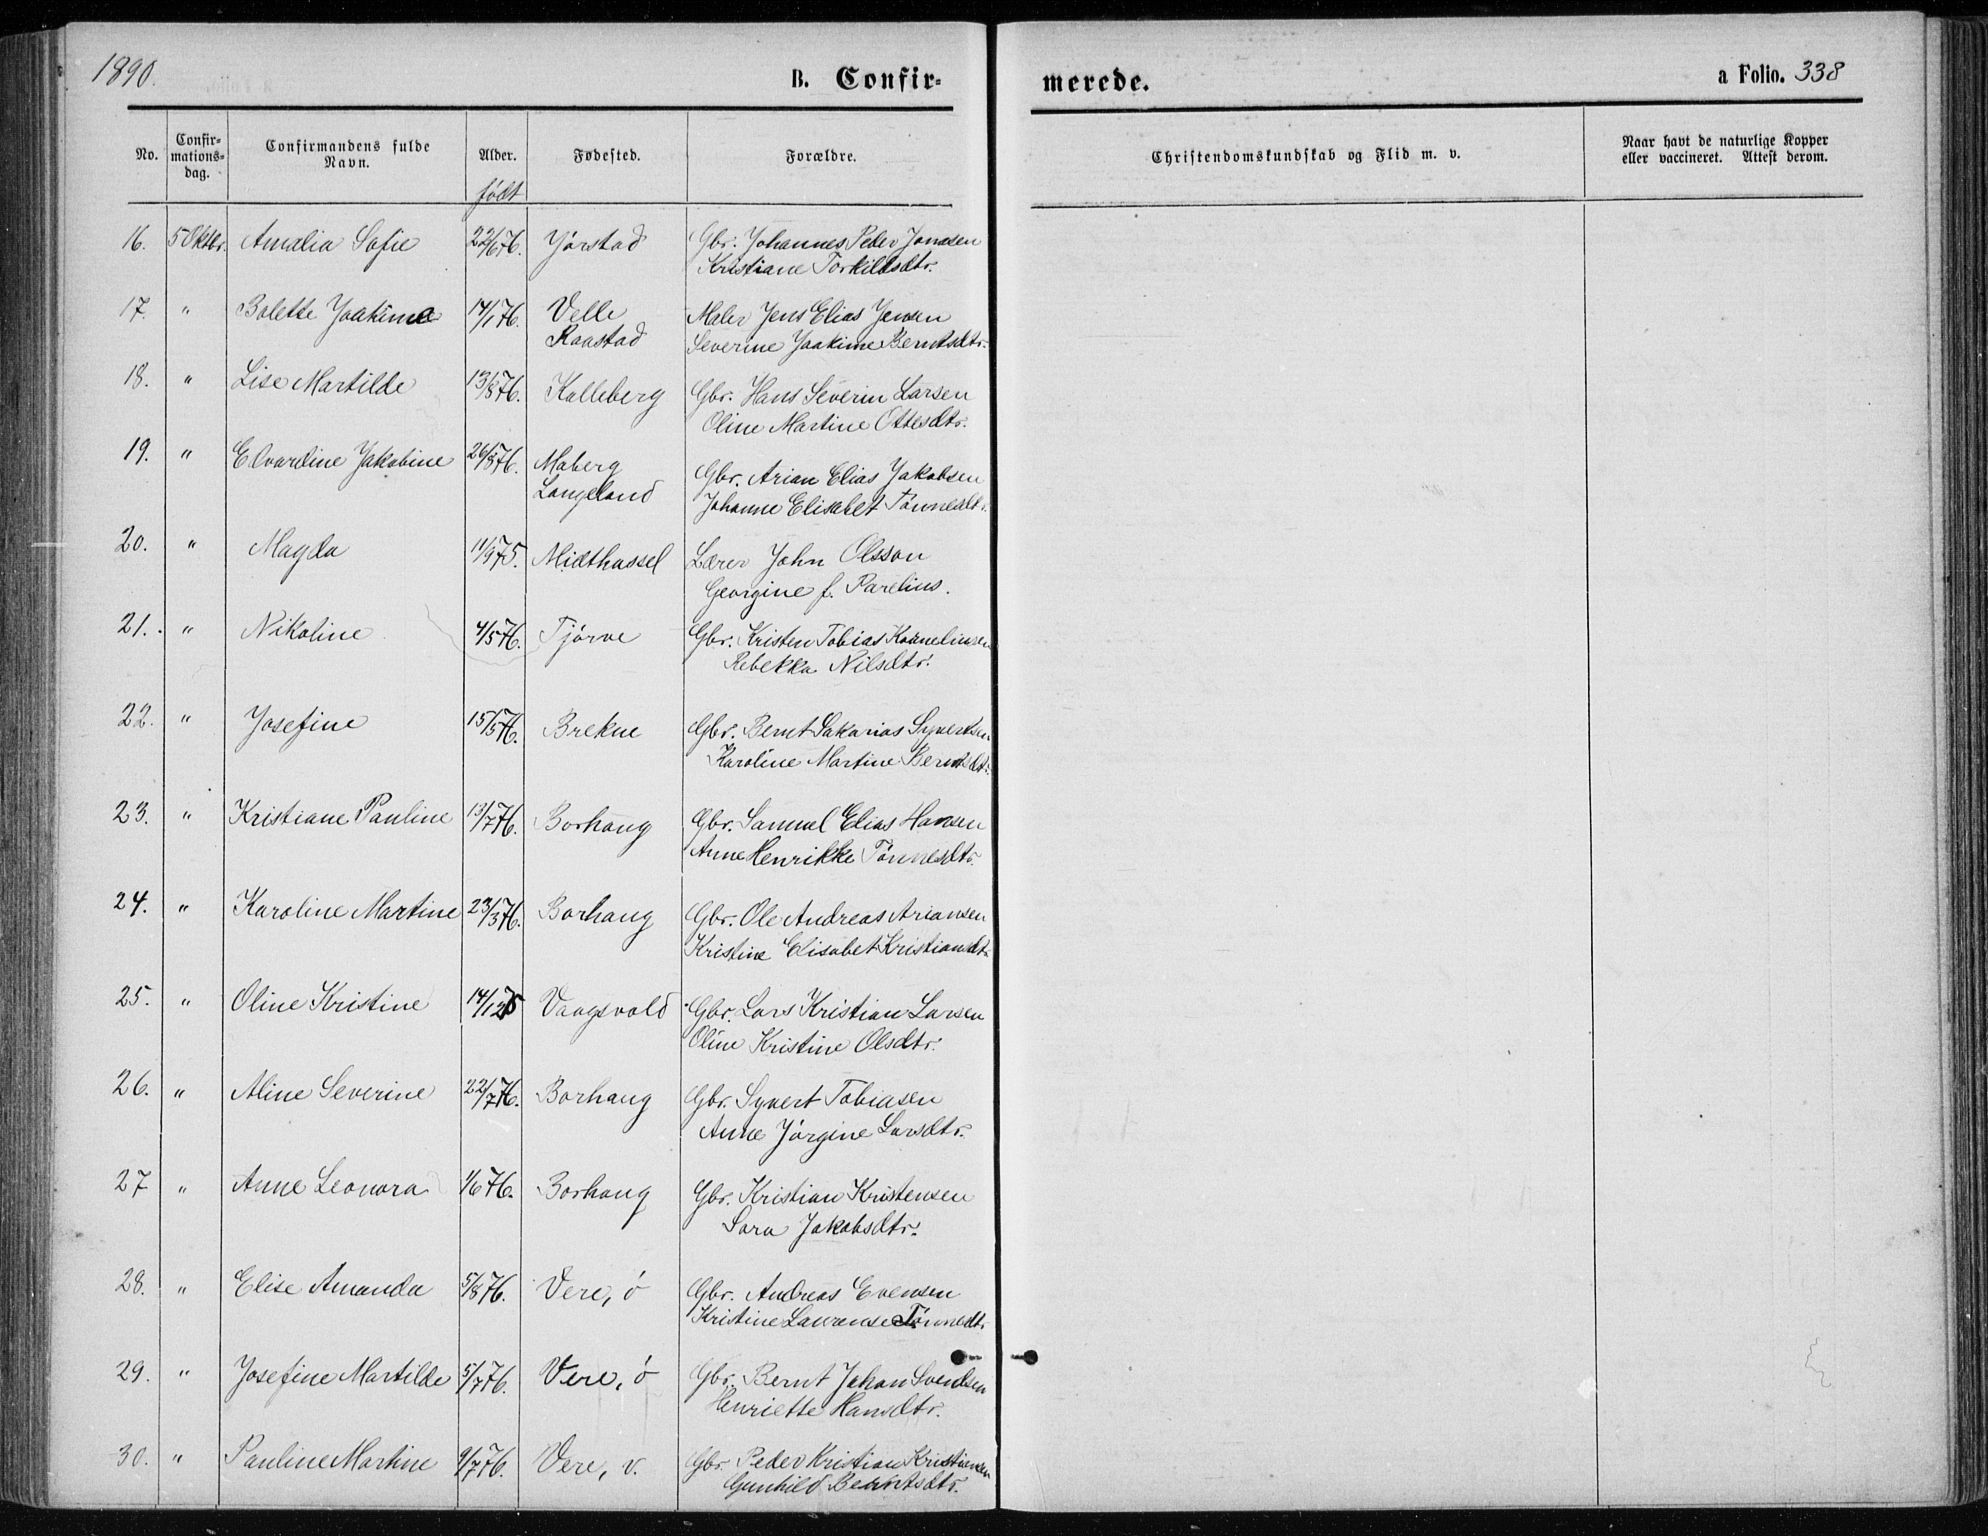 1890.
B. Confir-
merede.
a Folio. 338
No.
Confir-
mations-
dag.
Confirmandens fulde
Navn.
Alder.
Fødested.
Forældre.
Christendomskundskab og Flid m. v.
Naar havt de naturlige Kopper
eller vaccineret. Attest derom.
født
16. 5 Oktbr. Amalia Sofie 22/6 76. Jørstad Gbr. Johannes Peder Jonassen
Kristiane Torkildsdtr.
17. " Bolette Joakima 14/1 76. Velle Maler Jens Elias Jensen
Raastad Severine Joakime Berntsdtr.
18. " Lise Martilde 13/8 76. Kalleberg Gbr. Hans Severin Larsen
Oline Martine Ottesdtr.
19. " Edvardine Jakobine 26/8 76. Maberg Gbr. Arian Elias Jakobsen
Langeland Johanne Elisabet Tønnesdtr.
20. " Magda 11/9 75. Midthassel Lærer John Olsson
Georgine f. Parelius.
21. " Nikoline 4/5 76. Tjørve Gbr. Kristen Tobias Korneliusen
Rebekka Nilsdtr.
22. " Josefine 15/5 76. Brekne Gbr. Bernt Sakarias Syvertsen
Karoline Martine Berntsdtr.
23. " Kristiane Pauline 13/7 76. Borhaug Gbr. Samuel Elias Hansen
Anne Henrikke Tønnesdtr.
24. " Karoline Martine 23/3 76. Borhaug Gbr. Ole Andreas Ariansen
Kristine Elisabet Kristiansdtr.
25. " Oline Kristine 14/12 75 Vaagsvold Gbr. Lars Kristian Larsen
Oline Kristine Olsdtr.
26. " Aline Severine 22/7 76. Borhaug Gbr. Syvert Tobiasen
Anne Jørgine Larsdtr.
27 " Anne Leonora 1/6 76. Borhaug Gbr. Kristian Kristensen
Sara Jakobsdtr.
28. " Elise Amanda 5/8 76. Vere, ø Gbr. Andreas Evensen
Kristine Laurense Tønnesdtr.
29. " Josefine Martilde 5/7 76. Vere, ø Gbr. Bernt Johan Svendsen
Henriette Hansdtr.
30. " Pauline Martine 9/7 76. Vere, v. Gbr. Peder Kristian Kristiansen
Gunhild Berntsdtr.